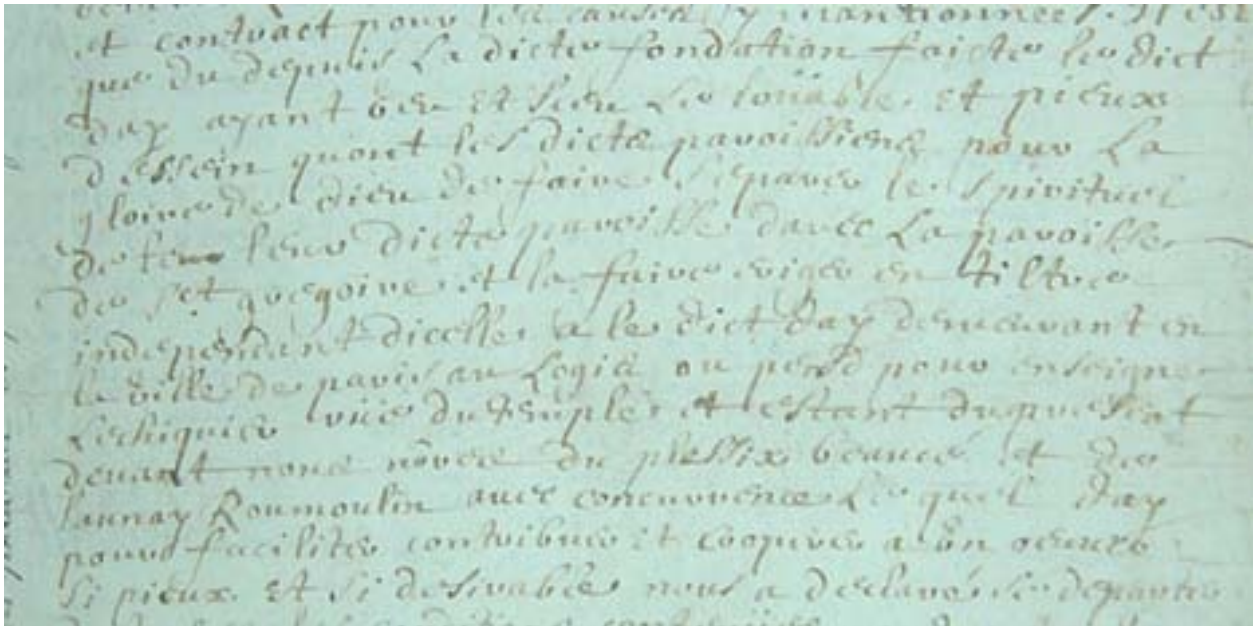 et contract pour les causes y mantionnees. Il est
que du depuis La dicte fondation faicte le dict
day ayant veu Et sceu Le loüable et pieux
dessein quont les dicts paroissiens pour La
gloire de dieu de faire separer le spirituel
de leur dicte paroisse davec La paroisse
de st gregoire et la faire eriger en tiltre
independant dicelle a le dict day demeurant en
la ville de paris au Logis ou pend pour enseigne
Lechiquier rüe du temple et estant du present
devant nous nôres du plessix beaucé et de
launay Roumoulin avec concurrence Le quel day
pour faciliter contribuer et cooperer a un oeuvre
si pieux Et si desirable nous a declaré se departir